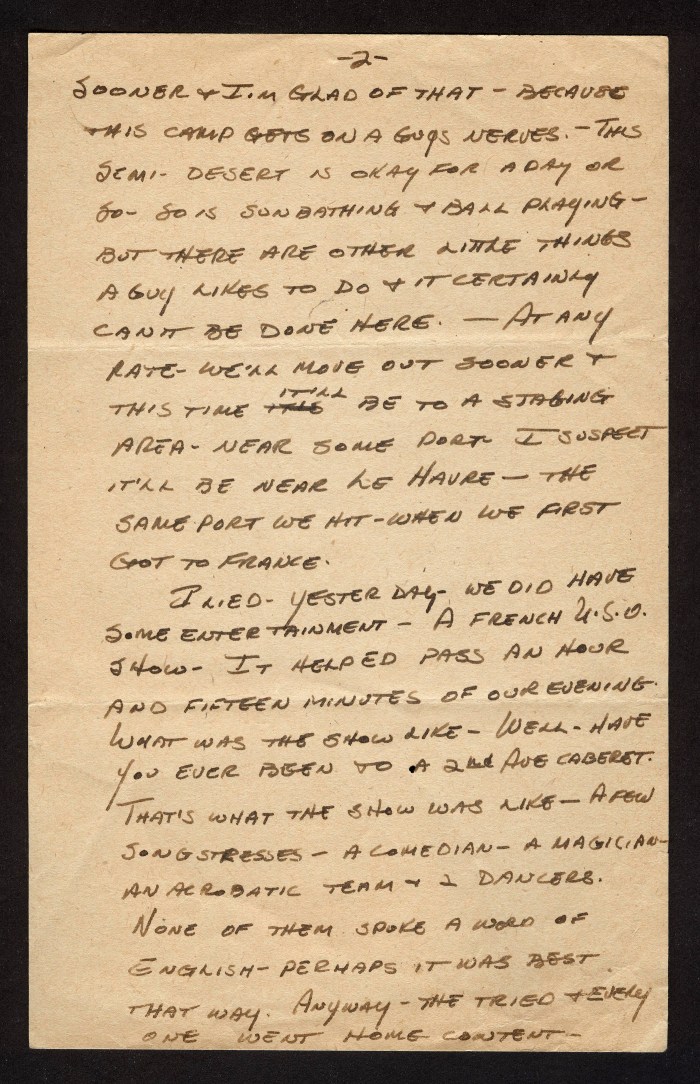 -2-
SOONER & I'M GLAD OF THAT - BECAUSE
THIS CAMP GETS ON A GUYS NERVES. - THIS
SEMI- DESERT IS OKAY FOR A DAY OR
SO- SO IS SUNBATHING & BALL PLAYING -
BUT THERE ARE OTHER LITTLE THINGS
A GUY LIKES TO DO & IT CERTAINLY
CAN'T BE DONE HERE. — AT ANY
RATE- WE'LL MOVE OUT SOONER &
THIS TIME IT'LL BE TO A STAGING
AREA- NEAR SOME PORT- I SUSPECT
IT'LL BE NEAR LE HAVRE — THE
SAME PORT WE HIT - WHEN WE FIRST
GOT TO FRANCE.
I LIED- YESTERDAY- WE DID HAVE
SOME ENTERTAINMENT - A FRENCH U.S.O.
SHOW- IT HELPED PASS AN HOUR
AND FIFTEEN MINUTES OF OUR EVENING.
WHAT WAS THE SHOW LIKE - WELL - HAVE
YOU EVER BEEN TO A 2nd AVE CABERET.
THAT'S WHAT THE SHOW WAS LIKE — A FEW
SONGSTRESSES - A COMEDIAN - A MAGICIAN -
AN ACROBATIC TEAM & 2 DANCERS.
NONE OF THEM SPOKE A WORD OF
ENGLISH - PERHAPS IT WAS BEST
THAT WAY. ANYWAY - THE TRIED & EVERY
ONE WENT HOME CONTENT -